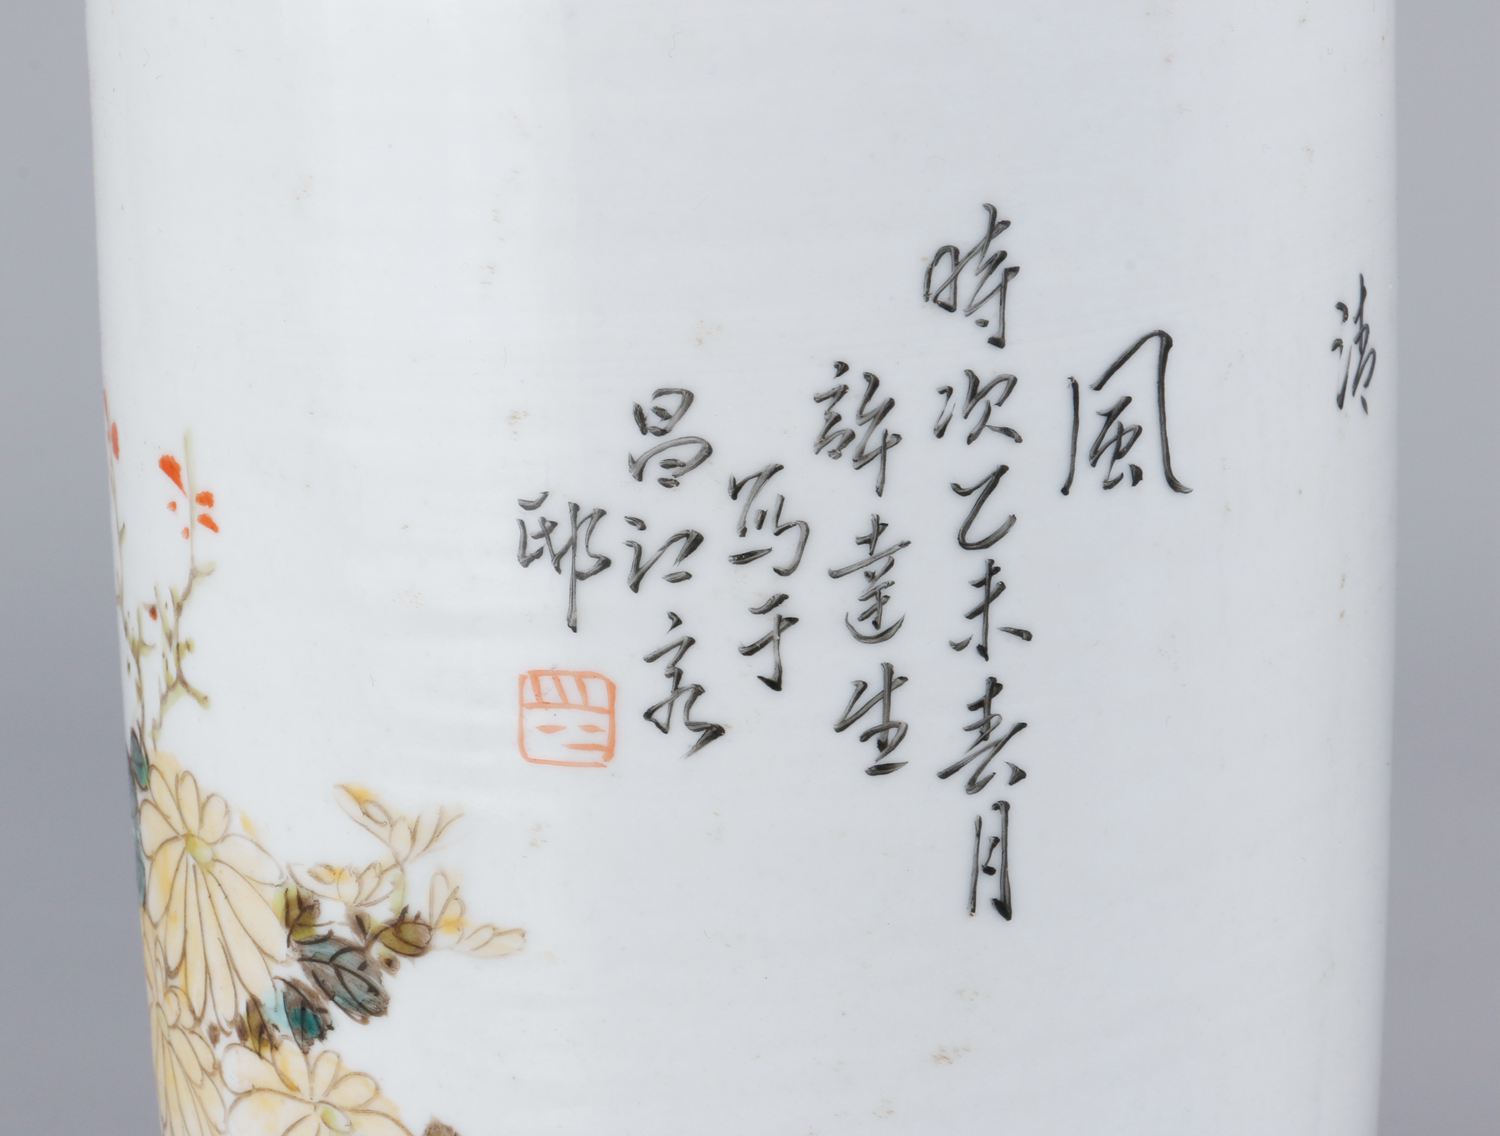 清
風
時次乙未春月
許達生
寫于
昌江客
邸